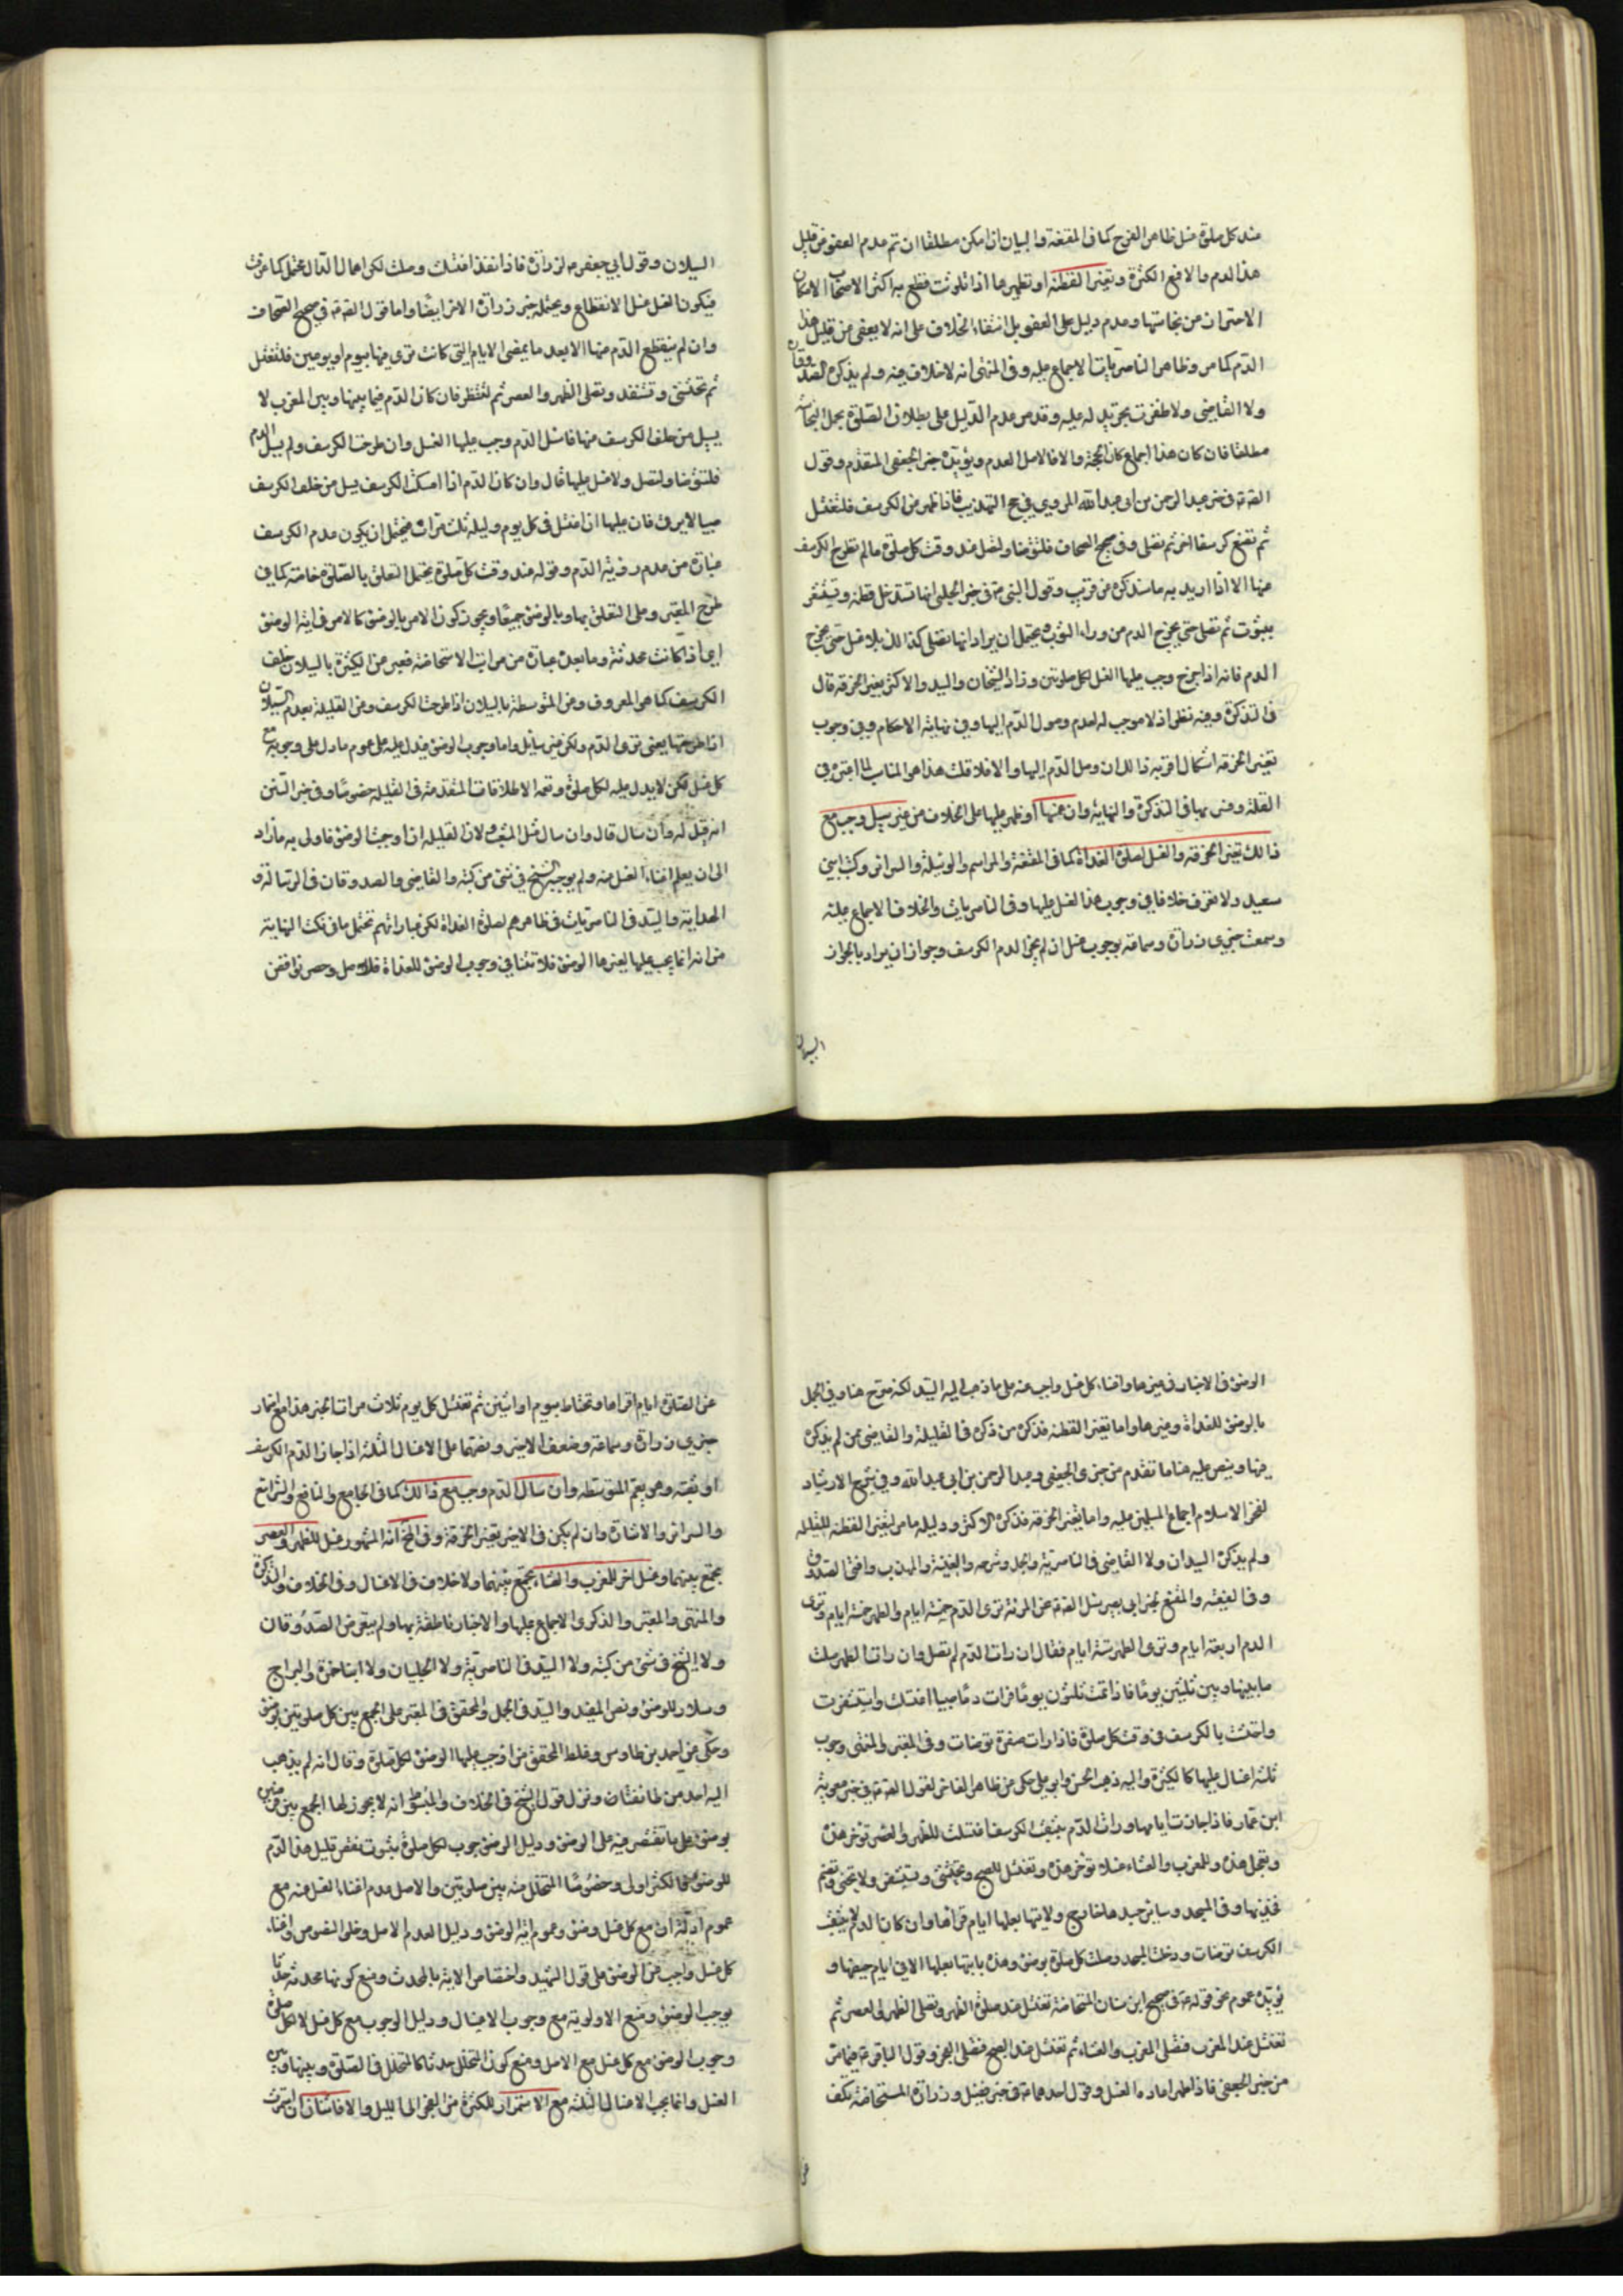 عند كل صلوة غسل ظاهر الفرج كما في المقنعة والبيان ان امكن مطلقا ان تم عدم العفو عن قليل
هذا الدم والا فمع الكثرة وتغير القطنة او تطهيرها اذا تلوثت قطع به اكثر الاصحاب لامكان
الاحتراز من نجاستها وعدم دليل على العفو بل انتفاء الخلاف على انه لا يعفى عن قليل هذا
الدم كما مر وظاهر الناصريات الاجماع عليه وفي المنتهى انه لا خلاف فيه ولم يذكره الصدوقان
ولا القاضي ولا ظفرت بخبر يدل عليه وقد مر عدم الدليل على بطلان الصلوة بحمل النجاسة
مطلقا فان كان هذا اجماع كان الحجة والا فالاصل العدم ويؤيده خبر الجعفي المتقدم وقول
الص في خبر عبد الرحمن بن ابي عبد الله المروي في حج التهذيب فاذا ظهر من الكرسف فلتغتسل
ثم تضع كرسفا اخر ثم تصلي وفي صحيح الصحاف فلتتوضأ ولتصل عند وقت كل صلوة ما لم تطرح الكرسف
منها الا اذا اريد به ما سنذكره من قريب وقول النبي في خبر الحلبي انها تستدخل قطنة وتستثفر
بثوب ثم تصلي حتى يخرج الدم من وراء الثوب يحتمل ان يراد انها تصلي كذلك بلا غسل حتى يخرج
الدم فانه اذا خرج وجب عليها الغسل لكل صلوتين وزاد الشيخان والسيد والاكثر تغيير الخرقة قال
في التذكرة وفيه نظر اذ لا موجب له لعدم وصول الدم اليها وفي نهاية الاحكام وفي وجوب
تغيير الخرقة اشكال اقربه ذلك ان وصل الدم اليها والا فلا قلت هذا هو المناسب لما اعتبره في
القلة وفسر بها في التذكرة والنهاية وان غمسها او ظهر عليها على الخلاف من غير سيل وجب مع
ذلك تغيير الخرقة والغسل لصلوة الغداة كما في المقنعة والمراسم والوسيلة والسرائر وكتب ابني
سعيد ولا نعرف خلافا في وجوب هذا الغسل عليها وفي الناصريات والخلاف الاجماع عليه
وسمعت خبري زرارة وسماعة بوجوب غسل ان لم يجز الدم الكرسف وجواز ان يراد بالجواز
السيلان
السيلان وقول ابي جعفر لزرارة فاذا نفذ اغتسلت وصلت لكن اهمال الدال يحتمل كما عرفت
فيكون الغسل غسل الانقطاع ويحتمله خبر زرارة الاخر ايضا واما قول الص في صحيح الصحاف
وان لم ينقطع الدم عنها الا بعد ما يمضي الايام التي كانت ترى فيها بيوم او يومين فلتغتسل
ثم تحتشي وتستذفر وتصلي الظهر والعصر ثم لتنظر فان كان الدم فيما بينها وبين المغرب لا
يسيل من خلف الكرسف منها فاسئل الدم وجب عليها الغسل وان طرحت الكرسف ولم يسل الدم
فلتتوضأ ولتصل ولا غسل عليها قال وان كان الدم اذا امسكت الكرسف يسيل من خلف الكرسف
صبيبا لا يرقى فان عليها ان تغتسل في كل يوم وليلة ثلث مرات فيحتمل ان يكون عدم الكرسف
عبارة عن عدم رؤية الدم وقوله عند وقت كل صلوة يحتمل التعلق بالصلوة خاصة كما في
طرح المعتبر وعلى التعلق بها وبالوضوء جميعا ويجوز كون الامر بالوضوء كالامر في اية الوضوء
اي اذا كانت محدثة وما بعده عبارة عن مراتب الاستحاضة فعبر عن الكثرة بالسيلان خلف
الكرسف كما هو المعروف وعن المتوسطة بالسيلان اذا طرحت الكرسف وعن القليلة بعدم السيلان
اذا طرحتها يعني ترى الدم ولكن غير سايل واما وجوب الوضوء فيدل عليه عموم ما دل على وجوبه مع
كل غسل لكن لا يدل عليه لكل صلوة ويعمه الاطلاقات المتقدمة في القليلة خصوصا وفي خبر
انه قيل له وان سال قال وان سال مثل المثعب ولان القليلة اذا اوجبت الوضوء فاولى به ما زاد
الى ان يعلم اغناء الغسل عنه ولم يوجبه الشيخ في شئ من كتبه والقاضي والصدوقان في الرسالة و
الهداية والسيد في الناصريات في ظاهرهم لصلوة الغداة لكن عباراتهم تحتمل ما في نكت النهاية
من انه انما يجب عليها لغيرها الوضوء فلا تنافي وجوب الوضوء للغداة
الوضوء في الاخبار في غيرها واغناء كل غسل واجب عنه على ما ذهب اليه السيد لكنه صرح هنا وفي الجمل
بالوضوء للغداة وغيرها واما تغيير القطنة فذكره من ذكره في القليلة والقاضي ممن لم يذكره
فيها وينص عليه هنا ما تقدم من خبري الجعفي وعبد الرحمن بن ابي عبد الله وفي شرح الارشاد
لفخر الاسلام اجماع المسلمين عليه واما تغيير الخرقة فذكره الاكثر ودليله ما مر لتغيير القطنة للقليلة
ولم يذكره السيدان ولا القاضي في الناصرية والجمل وشرحه والغنية والمهذب وافتى الصدوق
وفي الفقيه والمقنع بخبر ابي بصير سئل الص عن المرئة ترى الدم خمسة ايام والطهر خمسة ايام وترى
الدم اربعة ايام وترى الطهر ستة ايام فقال ان رات الدم لم تصل وان رات الطهر صلت
ما بينها وبين ثلثين يوما فاذا تمت ثلثون يوما فرات دما صبيبا اغتسلت واستثفرت
واحتشت بالكرسف في وقت كل صلوة فاذا رات صفرة توضات وفي المعتبر والمنتهى وجوب
ثلثة اغسال عليها كالكثيرة واليه ذهب الحسن وابو علي وحكى عن ظاهر الفاخر لقول الص في خبر معوية
ابن عمار فاذا جازت ايامها ورات الدم يثقب الكرسف اغتسلت للظهر والعصر تؤخر هذه
وتعجل هذه وللمغرب والعشاء غسلا تؤخر هذه وتغتسل للصبح وتحتشي وتستثفر ولا تحنى وتضم
فخذيها وفي المسجد وساير جسدها خارج ولا ياتيها بعلها ايام قرائها وان كان الدم لا يثقب
الكرسف توضات ودخلت المسجد وصلت كل صلوة بوضوء وهذه ياتيها بعلها الا في ايام حيضها و
يؤيده عموم نحو قوله في صحيح ابن سنان المستحاضة تغتسل عند صلوة الظهر وتصلي الظهر والعصر ثم
تغتسل عند المغرب فتصلي المغرب والعشاء ثم تغتسل عند الصبح فتصلي الفجر وقول الباقر فيما مر
من خبر الجعفي فاذا ظهر اعادت الغسل وقول احدهما في خبر فضيل وزرارة المستحاضة تكف
عن
عن الصلوة ايام اقرائها وتحتاط بيوم او اثنين ثم تغتسل كل يوم ثلاث مرات الخبر هذا مع
خبري زرارة وسماعة وضعف الاخير ونصهما على الاغسال الثلثة اذا جاز الدم الكرسف
او ثقبه وهو يعم المتوسطة وان سال الدم وجب مع ذلك كما في الجامع والنافع والشرائع
والسرائر والاشارة وان لم يكن في الاخير تغيير الخرقة وفي انه المشهور غسل للظهر والعصر
تجمع بينهما وغسل اخر للمغرب والعشاء تجمع بينهما ولا خلاف في الاغسال وفي الخلاف والتذكرة
والمنتهى والمعتبر والذكرى الاجماع عليها والاخبار ناطقة بها ولم يتعرض الصدوقان
ولا الشيخ في شئ من كتبه ولا السيد في الناصرية ولا الحلبيان ولا ابنا حمزة والبراج
وسلار للوضوء ونص المفيد والسيد في الجمل والمحقق في المعتبر على الجمع بين كل صلوتين بوضوء
وحكى عن احمد بن طاوس وغلط المحقق من اوجب عليها الوضوء لكل صلوة وقال انه لم يذهب
اليه احد من طائفتنا ونزل قول الشيخ في الخلاف والمبسوط انه لا يجوز لها الجمع بين فرضين
بوضوء على ما تقتصر فيه على الوضوء ودليل الوضوء وجوب لكل صلوة ثبوت نقض قليل هذا الدم
للوضوء فالكثير اولى وخصوصا المتخلل منه بين صلوتين والاصل عدم اغناء الغسل عنه مع
عموم ادلة ان مع كل غسل وضوء وعموم اية الوضوء ودليل العدم الاصل وخلو النصوص واغناء
كل غسل واجب عن الوضوء على قول السيد واختصاص الاية بالمحدث ومنع كونها محدثة حدثا
يوجب الوضوء ومنع الاولوية مع وجوب الاغسال ودليل الوجوب مع كل غسل لا لكل صلوة
وجوب الوضوء مع كل غسل مع الاصل ومنع كون المتخلل حدثا كالمتخلل في الصلوة وبينها وبين
الغسل وانما يجب الاغسال الثلثة مع الاستمرار للكثرة من الفجر الى الليل والا فاثنان ان استمرت